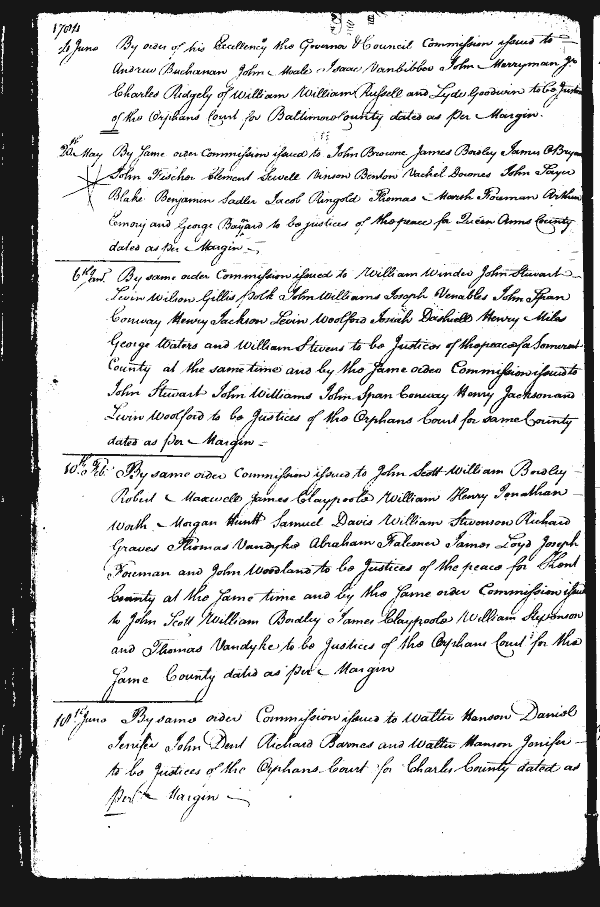 1784
4 June By order of his Excellency the Governor & Council Commission issued to
Andrew Buchanan John Moale Isaac Vanbibber John Merryman Jr
Charles Ridgely of William William Russell and Lyde Goodwin to be Justices
of the Orphans Court for Baltimore County dated as per Margin.
May By same order Commission issued to John Browne James Bordley James O Bryan
John Fischer Clement Sewell Vinson Benton Vachel Downes John Sayer
Blake Benjamin Sadler Jacob Ringold Thomas Marsh Foreman Arthur
Emory and George Bayard to be justices of the peace for Queen Anns County
dated as per Margin
6th By same order Commission issued to William Winder John Stewart
Levin Wilson Gillis Polk John Williams Joseph Venables John Span
Conway Henry Jackson Levin Woolford Josiah Dashiell Henry Miles
George Waters and William Stevens to be Justices of the peace for Somerset
County at the same time and by the same order Commission issued to
John Stewart John Williams John Span Conway Henry Jackson and
Levin Woolford to be Justices of the Orphans Court for same County
dated as per Margin
10th Feb. By same order Commission issued to John Scott William Bordley
Robert Maxwell James Claypoole William Henry Jonathan
Worth Morgan Hurtt Samuel Davis William Stevenson Richard
Graves Thomas Vandyke Abraham Falconer James Loyd Joseph
Foreman and John Woodland to be Justices of the peace for Kent
County at the same time and by the same order Commission issued
to John Scott William Bordley James Claypoole William Stevenson
and Thomas Vandyke to be Justices of the Orphans Court for the
same County dated as per Margin
June By same order Commission issued to Walter Hanson Daniel
Jenifer John Dent Richard Barnes and Walter Hanson Jenifer
to be Justices of the Orphans Court for Charles County dated as
per Margin